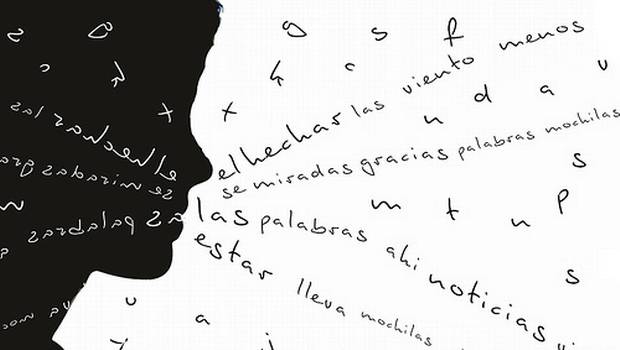 g s f
k c
x n d a v
el hechar las viento menos
se miradas gracias palabras mochilas
s
m t n p
las palabras ahi noticias
s
estar lleva mochilas
u a